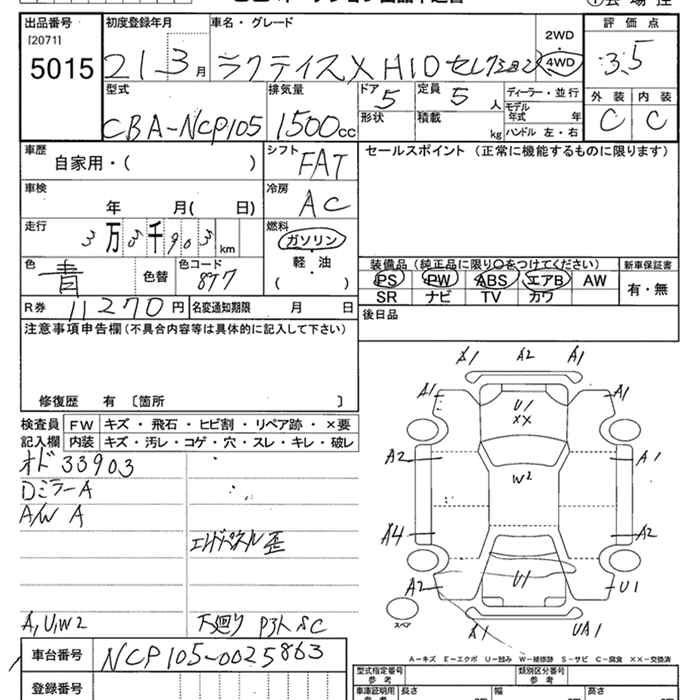 出品番号 初度登録年月 車名・グレード 2WD 評価点
[2071]
5015 21 3月 ラクティスX HIDセレクション 4WD 3.5
型式 排気量 ドア 5 定員 5人 ディーラー・並行 外装 内装
CBA-NCP105 1500cc 形状 積載 kg モデル年式 年 C C
ハンドル 左・右
車歴 自家用・( ) シフト FAT セールスポイント (正常に機能するものに限ります)
車検 年 月( 日) 冷房 AC
走行 3万 千903 km 燃料 ガソリン
軽・油
( )
色 青 色替 色コード 8T7
装備品 (純正品に限り〇をつけてください) 新車保証書
PS PW ABS エアB AW 有・無
SR ナビ TV カワ
R券 11270円 名変通知期限 月 日 後日品
注意事項申告欄 (不具合内容等は具体的に記入して下さい)
修復歴 有 [箇所 ]
検査員 FW キズ・飛石・ヒビ割・リペア跡・×要
記入欄 内装 キズ・汚レ・コゲ・穴・スレ・キレ・破レ
オド 33903
Dミラー A
A/W A
エンドパネル歪
A,U,W2 下廻り
X1 A2 A1
A1 U1 XX A1
A2 W2 A1
A4 A2
A2 U1 U1
スペア X1 UA1
A-キズ E-エクボ U-凹み W-補修跡 S-サビ C-腐食 XX-交換済
車台番号 NCP105-0025863
型式指定番号 参考 類別区分番号 参考
登録番号 車庫証明用 参考 長さ 幅 高さ